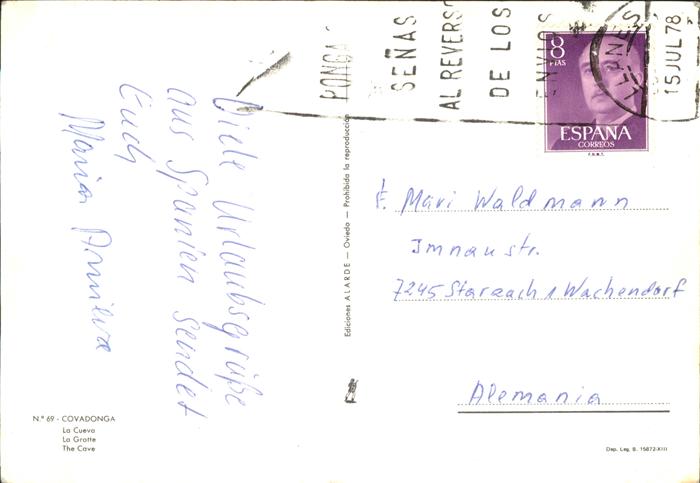 PONGA
SEÑAS
AL REVERSO
DE LOS
ENVIOS
LLANES
15 JUL 78
8
PTAS
ESPAÑA
CORREOS
F.N.M.T.
Viele Urlaubsgrüße
aus Spanien sendet
Euch
Maria
Ediciones ALARDE — Oviedo — Prohibida la reproducción
F. Mari Waldmann
Imnaustr.
7245 Starzach 1 Wachendorf
Alemania
N.º 69 - COVADONGA
La Cueva
La Grotte
The Cave
Dep. Leg. B. 15872-XIII